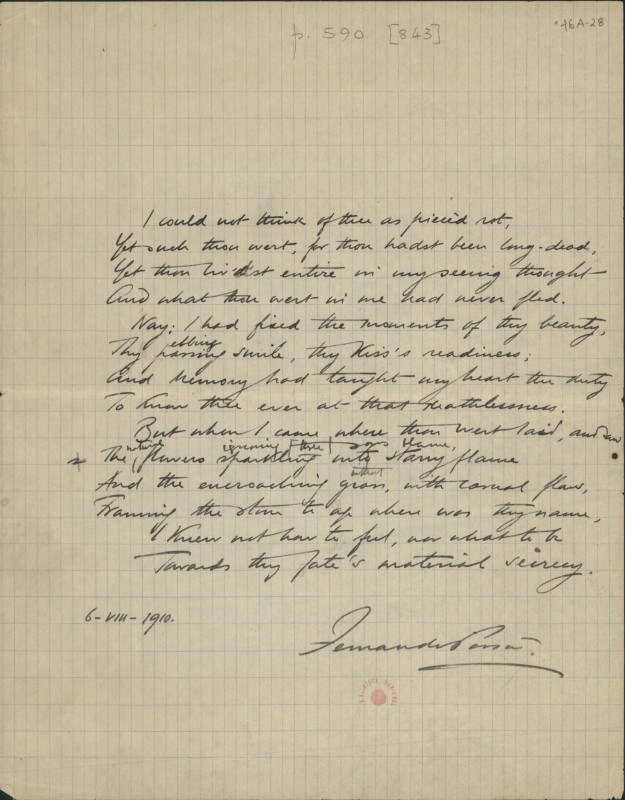 p. 590 [843]
46A-28
I could not think of thee as piecèd rot,
Yet such thou wert, for thou hadst been long-dead,
Yet thou liv'dst entire in my seeing thought
And what thou wert in me had never fled.
Nay; I had fixed the moments of thy beauty,
ebbing
Thy passing smile, thy Kiss's readiness;
And Memory had taught my heart the duty
To know thee ever at that deathlessness.
But when I came where thou wert laid, and saw
natural ignoring thee blame,
The flowers sparkling into starry flame
And the encroaching grass, with casual flaw,
Framing the stone to age where was thy name,
I knew not how to feel, nor what to be
Towards thy fate's material secrecy.
6-VIII-1910.
Fernando Pessoa.